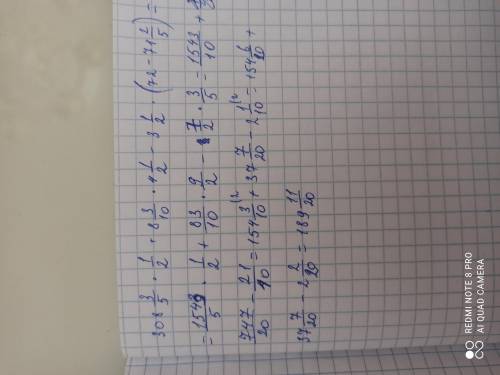 308 3/5 · 1/2 + 8 3/10 · 4 1/2 - 3 1/2 · (72 - 71 2/5) =
= 1543/5 · 1/2 + 83/10 · 9/2 - 7/2 · 3/5 = 1543/10 +
747/20 - 21/10 = 154 3/10 |2 + 37 7/20 - 2 1/10 |2 = 154 6/20 +
37 7/20 - 2 2/20 = 189 11/20
REDMI NOTE 8 PRO
AI QUAD CAMERA